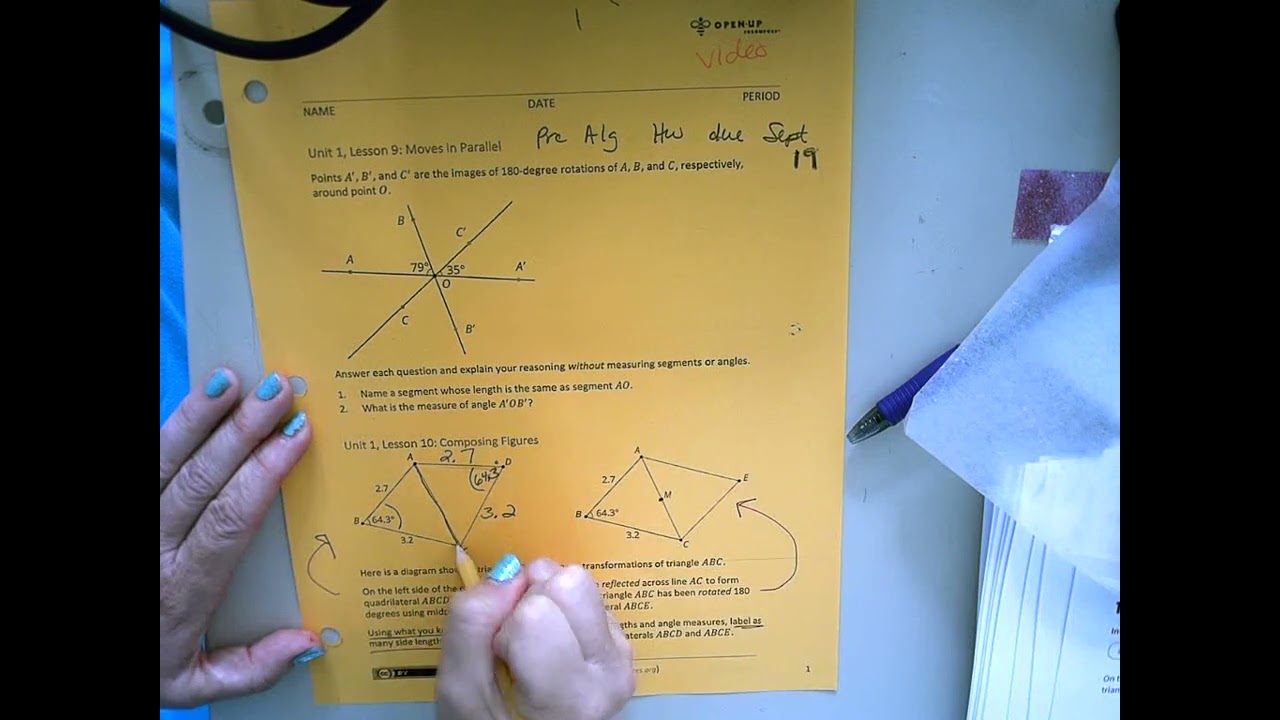 OPEN·UP
resources
video
NAME DATE PERIOD
Pre Alg Hw due Sept
19
Unit 1, Lesson 9: Moves in Parallel
Points A′, B′, and C′ are the images of 180-degree rotations of A, B, and C, respectively,
around point O.
B
C′
A
79°
35°
A′
O
C
B′
Answer each question and explain your reasoning without measuring segments or angles.
1. Name a segment whose length is the same as segment AO.
2. What is the measure of angle A′OB′?
Unit 1, Lesson 10: Composing Figures
A
2.7
D
64.3
2.7
3.2
B
64.3°
3.2
A
2.7
E
M
B
64.3°
3.2
C
Here is a diagram transformations of triangle ABC.
On the left side of the reflected across line AC to form
quadrilateral ABCD triangle ABC has been rotated 180
degrees using ABCE.
Using what you and angle measures, label as
many side ABCD and ABCE.
cc BY
1
On t
trian